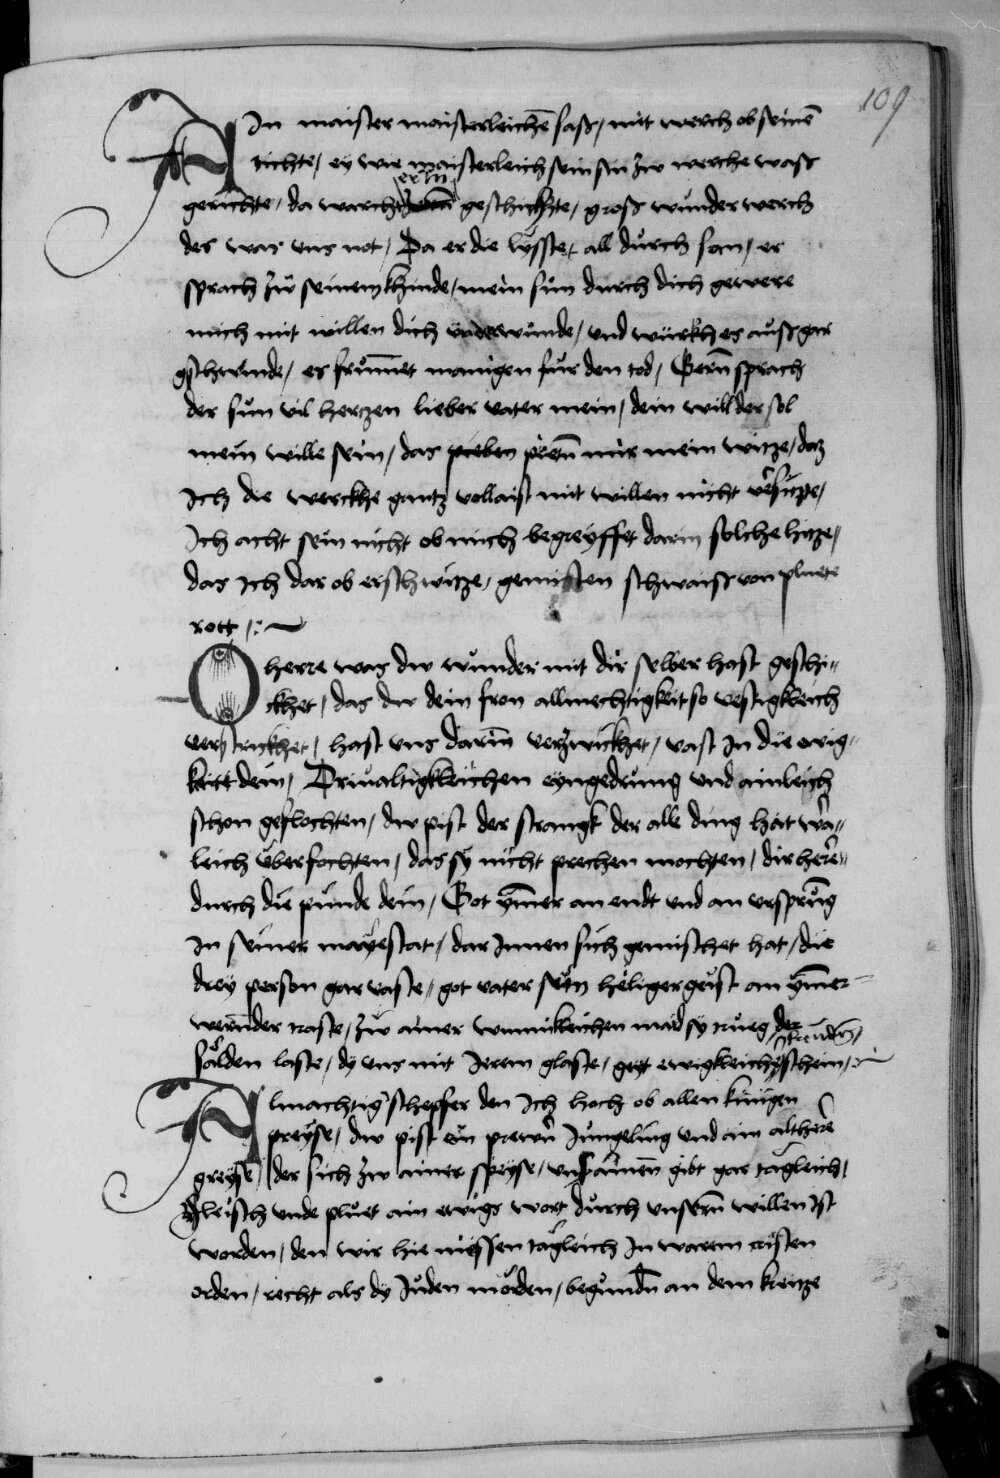 109
AIn maister maisterleichē sass / mit werch ob seinē
tichte / ey wie maisterleich sein sin zw werche wass
gerichte / da warchtt er in geschichte / gross wunder werch
des was vns not / Da er die lysste / all durch san / er
sprach zů seinem khinde / mein sůn durch dich gewere
mich mit willen dich vnderwinde / vnd würkh es auss gar
gschwinde / es frům̄et manigen fur den tod / Gern̄ sprach
der sun vil hertzen lieber vater mein / dein will der sol
mein wille sein / das prenn̄ mir mein witze / daz
Ich die werckhe gantz vollaist mit willen nicht v̄sitze /
Ich acht sein nicht ob mich begreyffet darin solche hitze /
das Ich dar ob erschwitze / gemisten schwaiss von pluete
rott /:~
O herre was dw wunder mit dir selber hast geschi=
ckhet / das dw dein fron allmechtigkeit so vestigkleich
verstrickhet / hast vns darin̄ verzwickhet / vast In die ewig=
keitt dein / Driualtigkleichen eyngedrung vnd ainleich
schon geflochten / dw pist der strangk der alle ding hat wā=
leich überfochten / das sy nicht prechen mochten / dir herē
durch die punde dein / Got ym̄er an endt vnd an vrsprūng
In seiner mayestat / dar Innen sich gemischet hat / die
drey person gar vaste / got vater sun heliger geist an ym̄er
wern̄der raste / zů ainer wunnikleichen maid sy trueg der
sålden laste / dy vns mit Irem glaste / geit ewigkleich freudn̄ schein /~
Almachtig schepfer den Ich hoch ob allen kunigen
preyse / dw pist ein prewn̄ Jungeling vnd ain altherē
greyse / der sich zw ainer speyse / vns armen̄ gibt gar tagleich /
Fleisch vnde pluet ain ewigs wort durch vnsern̄ willen Ist
worden / den wir hie niessen tagleich In warem cristen
orden / recht als dy Juden morden / begundn̄ an dem kreitze